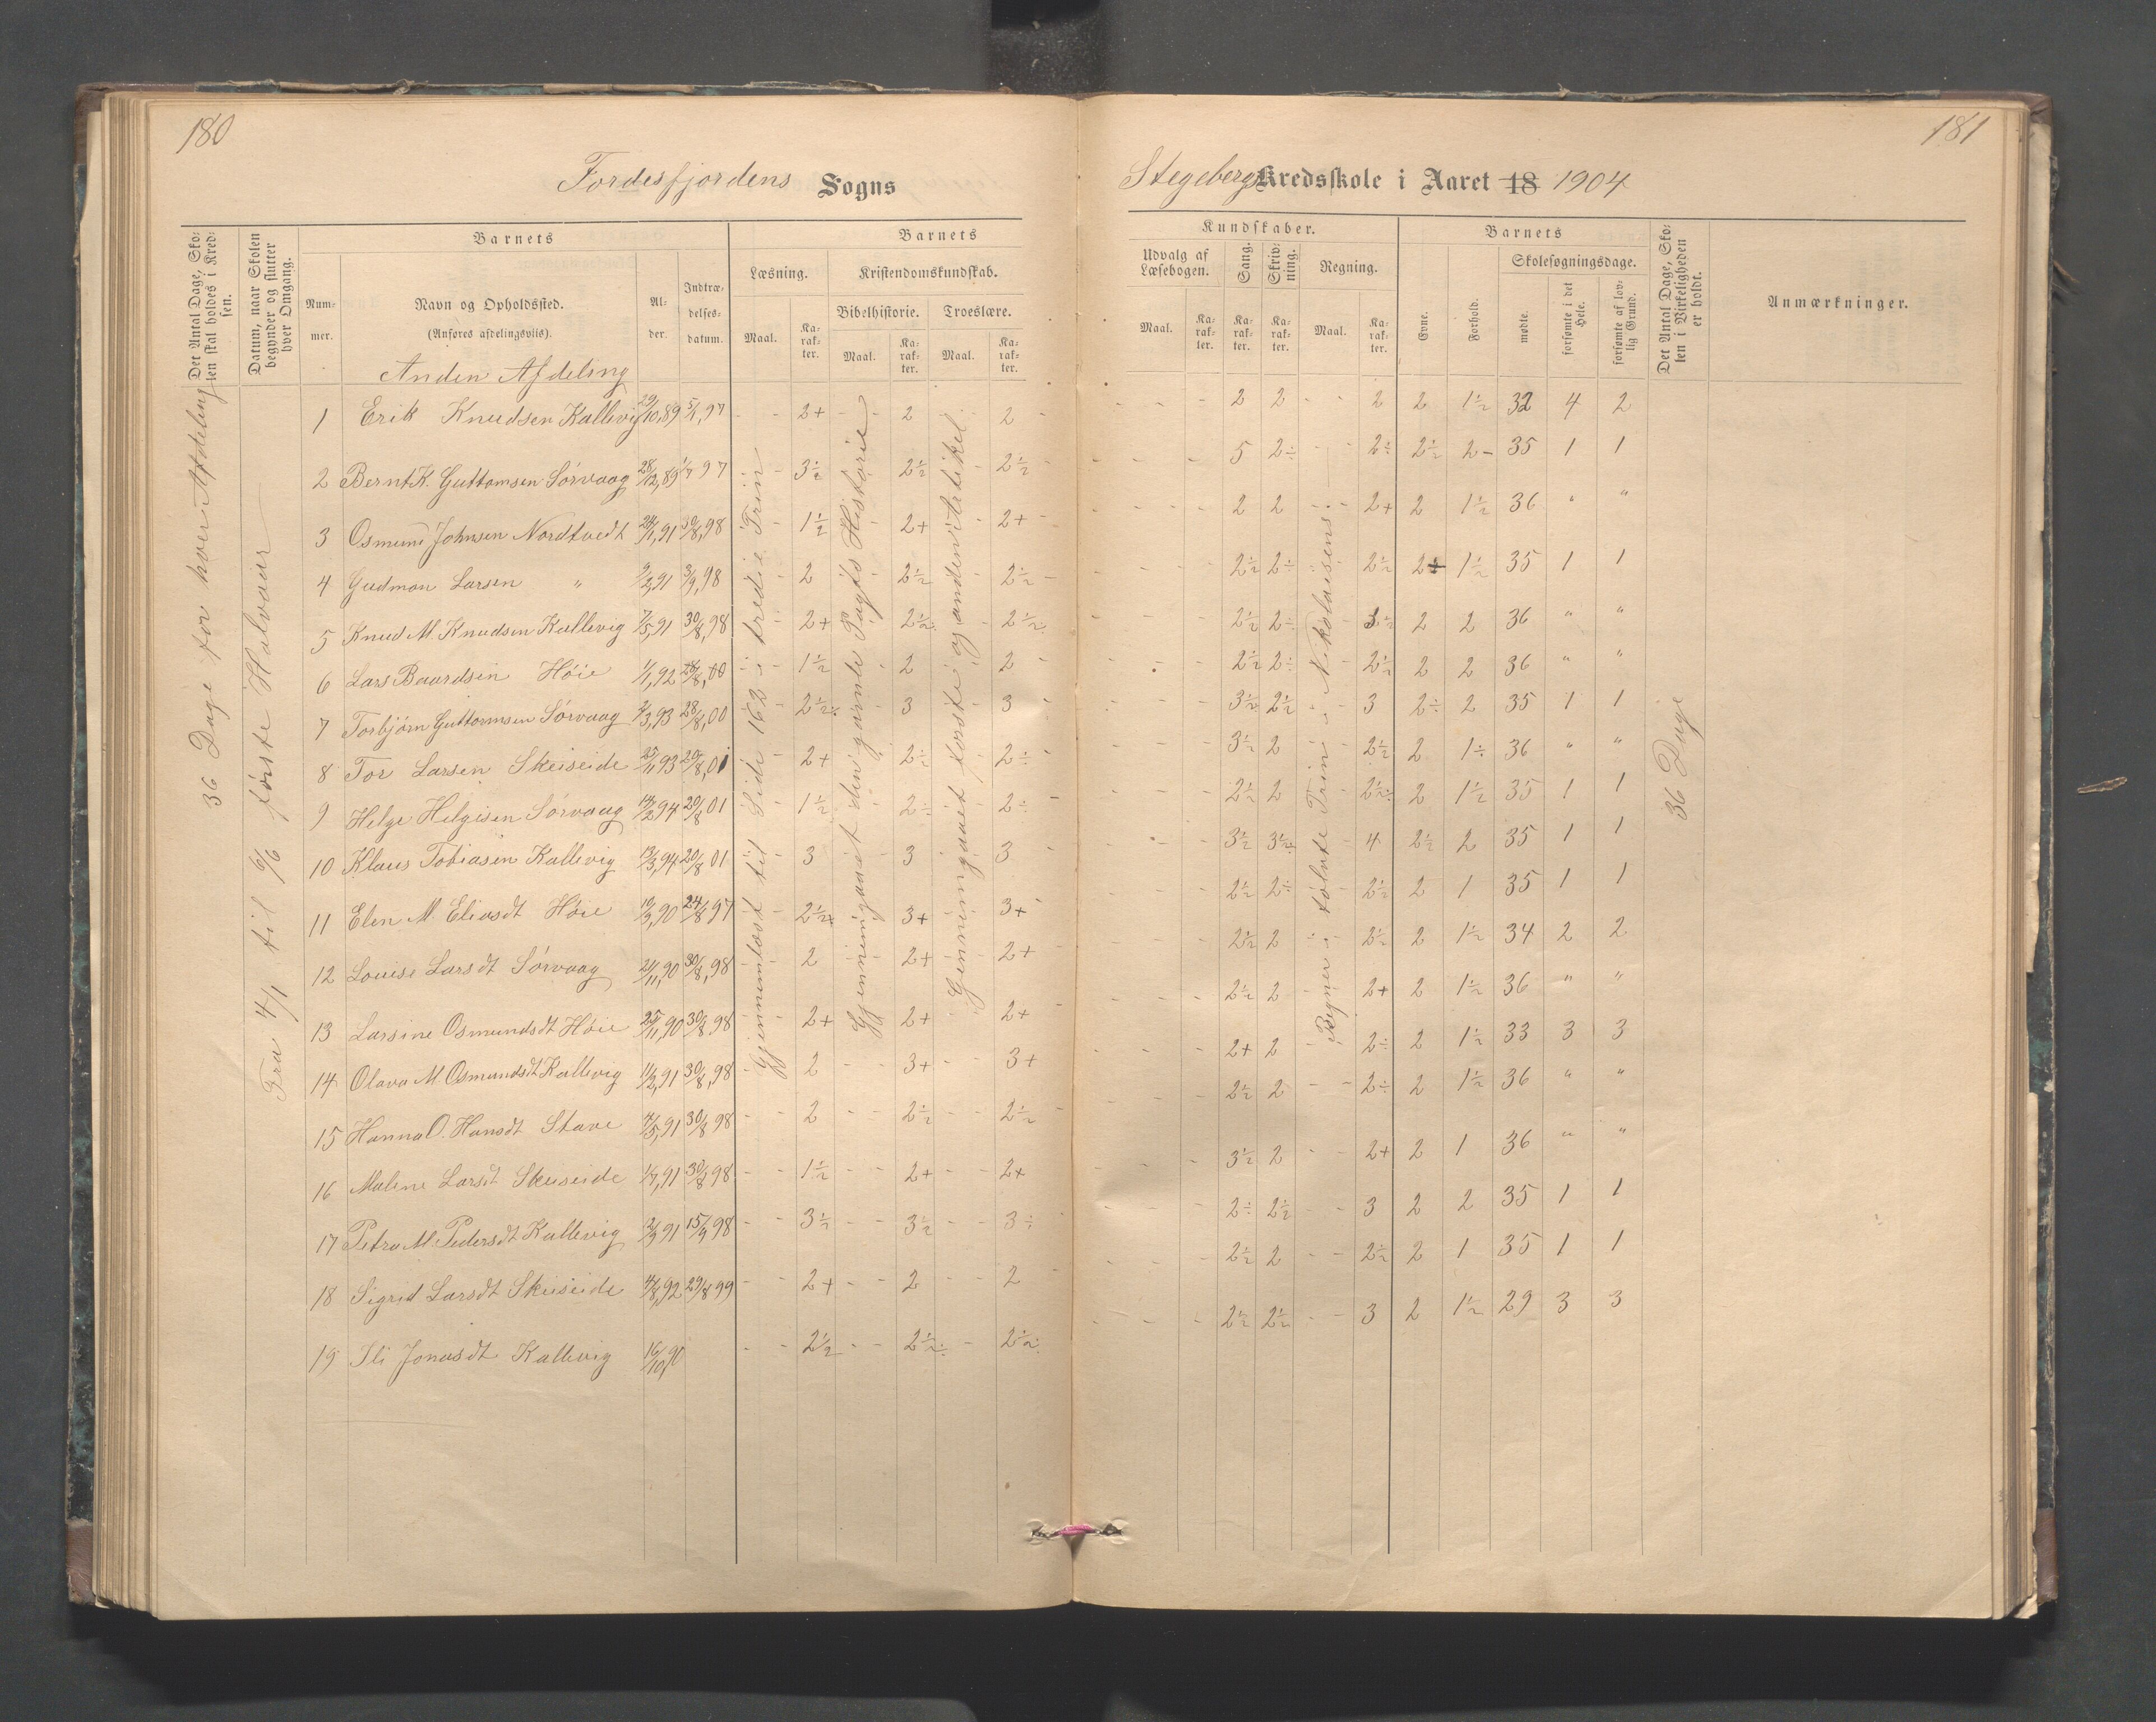 180
Fordesfjordens Sogns
Det Antal Dage, Skolen skal holdes i Kredsen.
Datum, naar Skolen begynder og slutter hver Omgang.
Barnets
Nummer.
Navn og Opholdssted.
(Anføres afdelingsvis).
Alder.
Indtrædelses-datum.
Barnets
Læsning.
Kristendomskundskab.
Bibelhistorie.
Troeslære.
Maal.
Karakter.
Maal.
Karakter.
Maal.
Karakter.
Anden Afdeling
36 Dage for hver Afdeling
Fra 4/1 til 6/6 første Halvaar
Gjennemlæst til Side 162 i tredie Trin
Gjennemgaaet den gamle Pagts Historie
Gjennemgaaet første og anden Artikel
1 Erik Knudsen Kallevig 29/10,89 5/7,97 2+ 2 2
2 Bernt K. Guttomsen Sørvaag 28/12,89 1/7 97 3½ 2½ 2½
3 Osmund Johnsen Nordtvedt 24/1,91 30/8,98 1½ 2+ 2+
4 Gudmon Larsen " 9/2,91 3/9,98 2 2½ 2½
5 Knud M. Knudsen Kallevig 7/5,91 30/8,98 2+ 2½ 2½
6 Lars Baardsen Høie 1/1,92 28/8,00 1½ 2 2
7 Torbjørn Guttormsen Sørvaag 7/3,93 28/8,00 2½÷ 3 3
8 Tor Larsen Skeiseide 25/11 93 20/8,01 2+ 2½ 2÷
9 Helge Helgesen Sørvaag 14/2 94 20/8 01 1½ 2÷ 2÷
10 Klaus Tobiasen Kallevig 13/3,94 20/8 01 3 3 3
11 Elen M. Eliasdt Høie 10/3,90 24/8 97 2½+ 3+ 3+
12 Louise Larsdt Sørvaag 21/11,90 30/8,98 2 2+ 2+
13 Larsine Osmundsdt Høie 25/11,90 30/8 98 2+ 2+ 2+
14 Olava M. Osmundsdt Kallevig 11/2,91 30/8,98 2 3+ 3+
15 Hanna O. Hansdt Stave 7/5,91 30/8 98 2 2½ 2½
16 Malene Larsdt Skeiseide 1/7,91 30/8 98 1½ 2+ 2+
17 Petra M. Pedersdt Kallevig 2/9 91 15/9 98 3½ 3½ 3÷
18 Sigrid Larsdt Skeiseide 4/8,92 29/8 99 2+ 2 2
19 Sli Jonasdt Kallevig 16/10,90 2½ 2½÷ 2½÷
181
Stegebergs Kredsskole i Aaret 18 1904
Kundskaber.
Udvalg af Læsebogen.
Sang.
Skrivning.
Regning.
Maal.
Karakter.
Karakter.
Karakter.
Maal.
Karakter.
Barnets
Evne.
Forhold.
Skolesøgningsdage.
mødte.
forsømte i det Hele.
forsømte af lovlig Grund.
Det Antal Dage, Skolen i Virkeligheden er holdt.
Anmærkninger.
Regner i tolvte Trin i Nikolaisens
36 Dage
2 2 2 2 1½ 32 4 2
5 2÷ 2÷ 2½ 2- 35 1 1
2 2 2+ 2 1½ 36 " "
2½ 2÷ 2½ 2+ 1½ 35 1 1
2½ 2÷ 2 2 36 " "
2½ 2÷ 2½ 2 2 36 " "
3½ 2½ 3 2÷ 2 35 1 1
3½ 2 2½ 2 1÷ 36 " "
2½ 2 2½÷ 2 1½ 35 1 1
3½ 3½ 4 2½ 2 35 1 1
2½ 2÷ 2½ 2 1 35 1 1
2½ 2 2½ 2 1½ 34 2 2
2½ 2 2+ 2 1½ 36 " "
2+ 2 2÷ 2 1½ 33 3 3
2½ 2 2÷ 2 1½ 36 " "
3½ 2 2+ 2 1 36 " "
2÷ 2½ 3 2 2 35 1 1
2½ 2 2½ 2 1 35 1 1
2½ 2½ 3 2 1½ 29 3 3